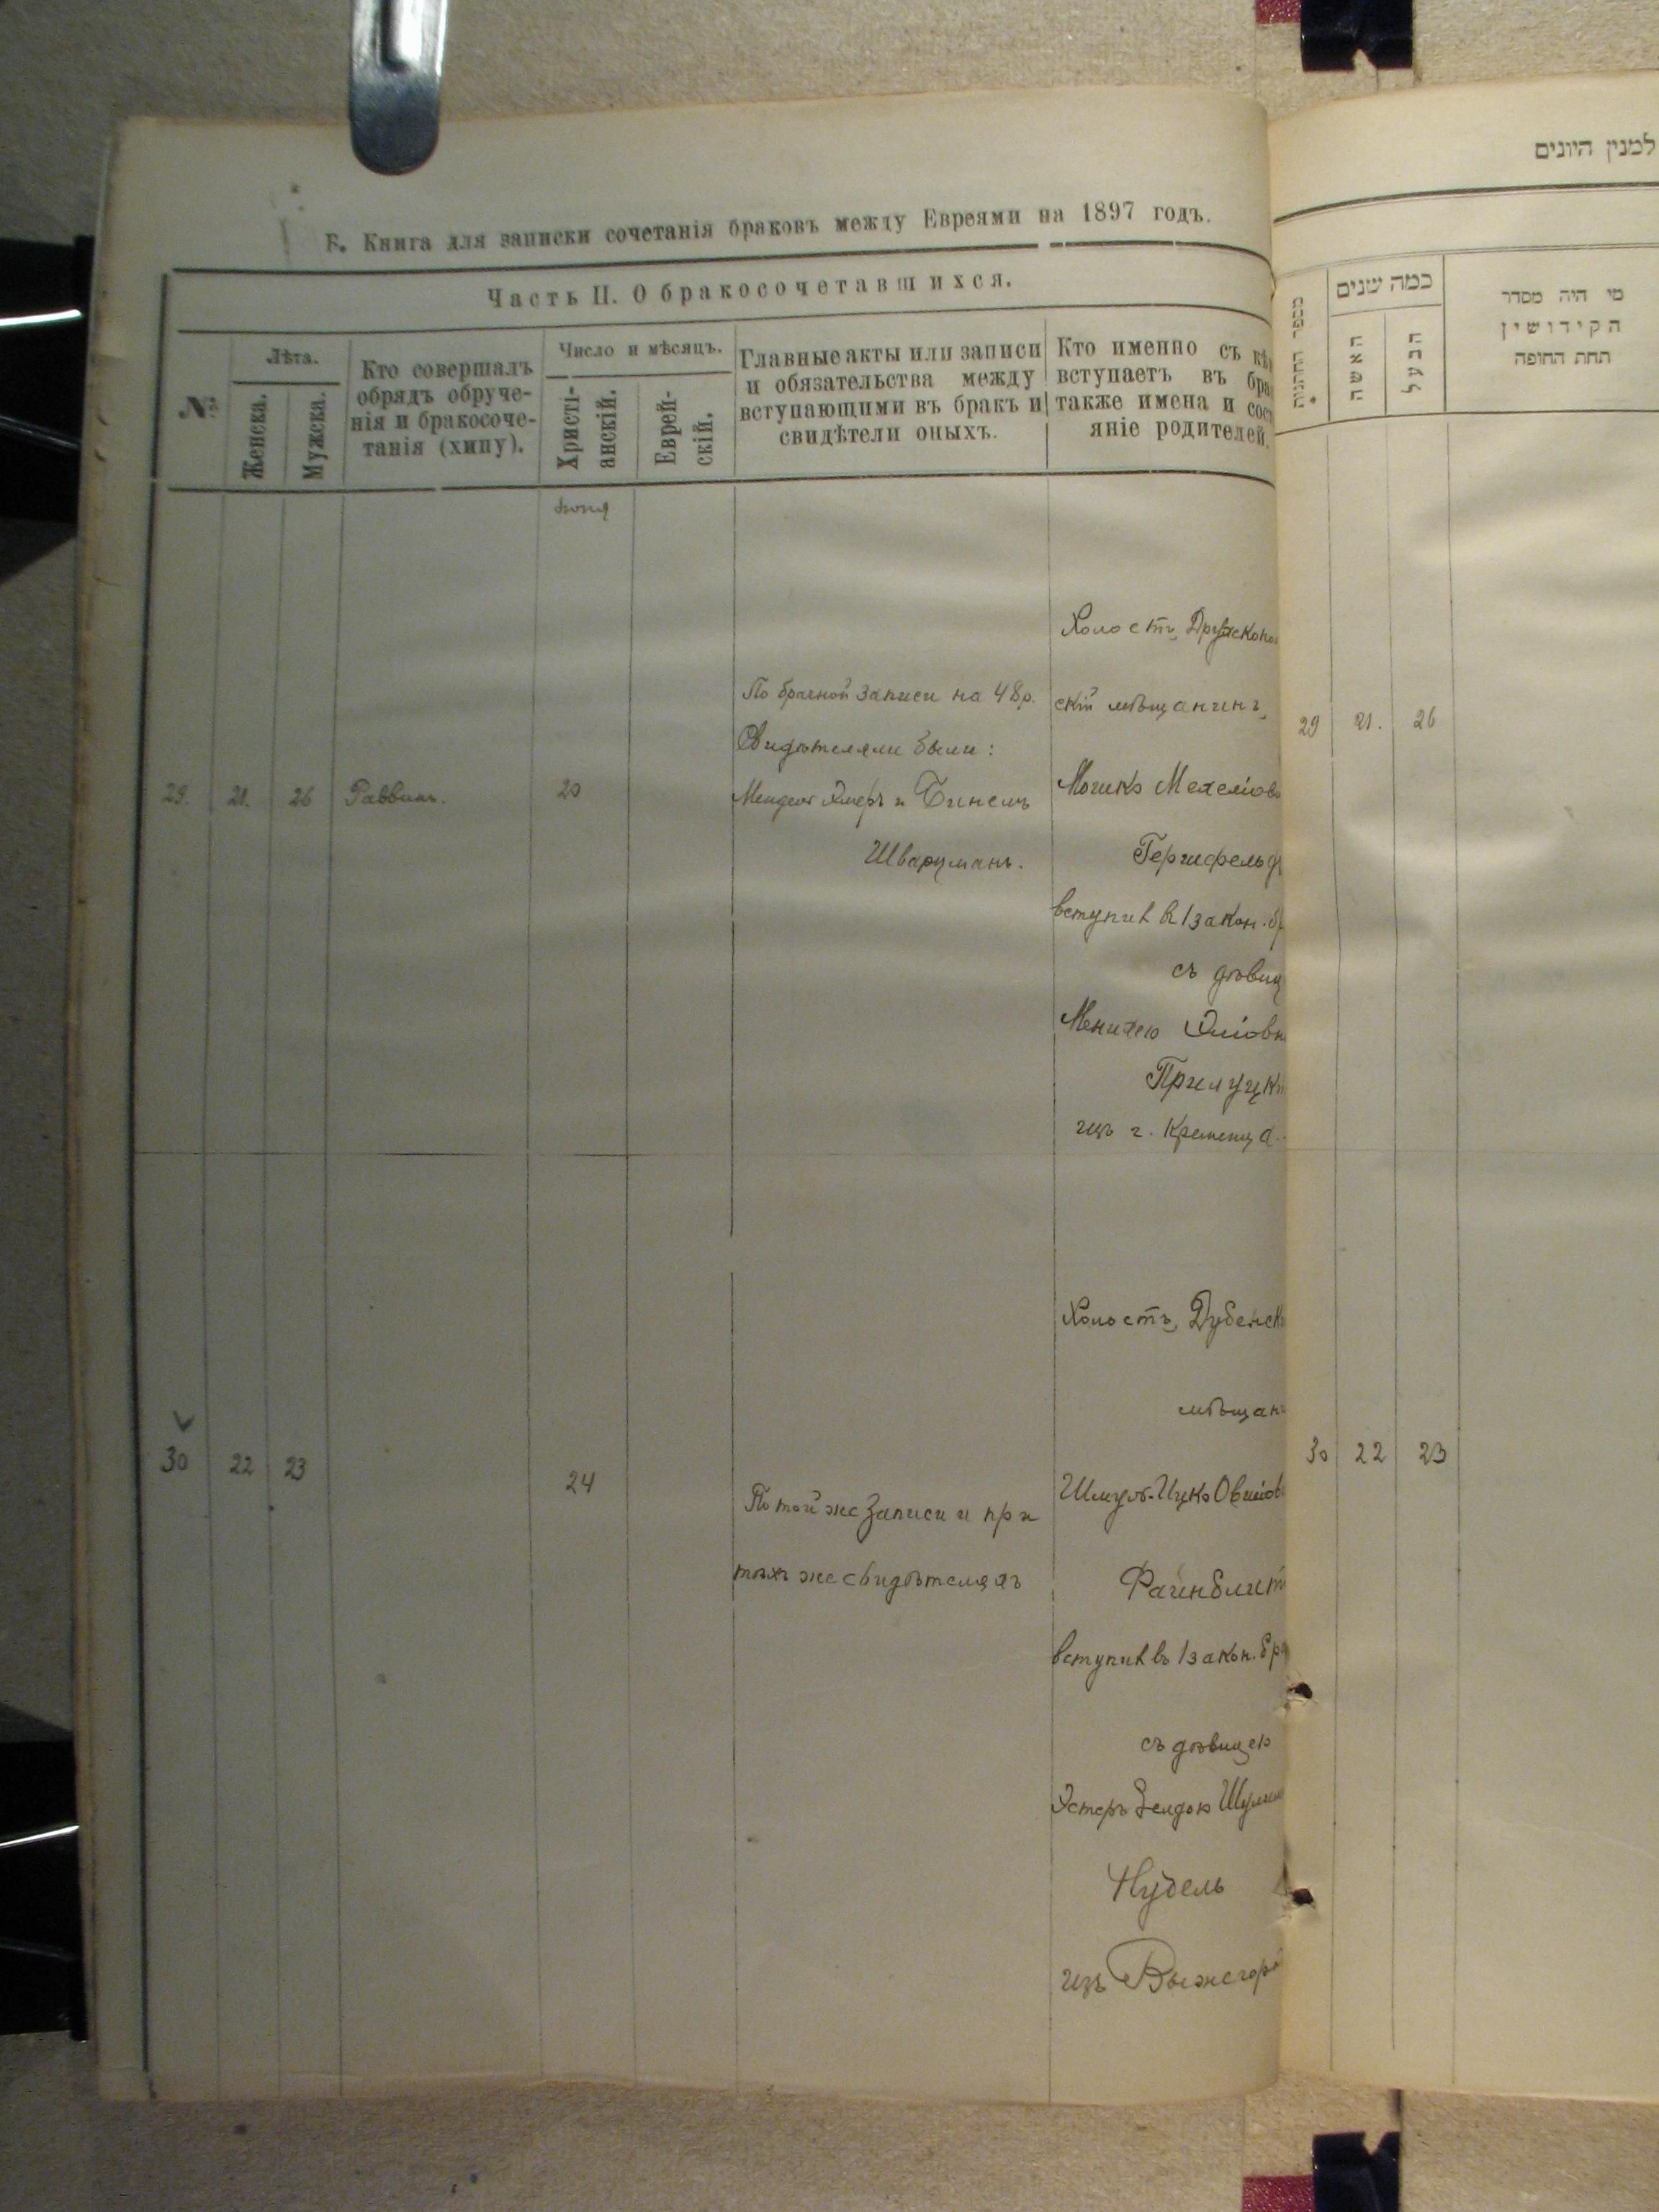 Б. Книга для записки сочетанія браковъ между Евреями на 1897 годъ.
Часть II. О бракосочетавшихся.
№
Лѣта.
Женска.
Мужска.
Кто совершалъ
обрядъ обруче-
нія и бракосоче-
танія (хипу).
Число и мѣсяцъ.
Христі-
анскій.
Еврей-
скій.
Главные акты или записи
и обязательства между
вступающими въ бракъ и
свидѣтели оныхъ.
Кто именно съ кѣ
вступаетъ въ бра
также имена и сост
яніе родителей.
29. 21. 26 Раввинъ. 20
По брачной записи на 48 р.
Свидѣтелями были:
Мендель и Бинемъ
Шварцманъ.
Холостъ,
скій мѣщанинъ,
Мошко
Гершфельд
вступил в 1 закон. бр
съ дѣвиц
Менихею
Прилуцк
изъ г. Кременца
30 22 23 24
По той же записи и при
тѣхъ же свидѣтеляхъ
Холостъ, Дубенск
мѣщани
Шмуль-Ицко Овшіов
Файнблит
вступил въ 1 закон. бра
съ дѣвицею
Эстеръ Зелдою
Нудель
изъ Выжгор
למנין היונים
מספר החתנות
כמה שנים
האשה
הבעל
מי היה מסדר
הקידושין
תחת החופה
29 21. 26
30 22 23